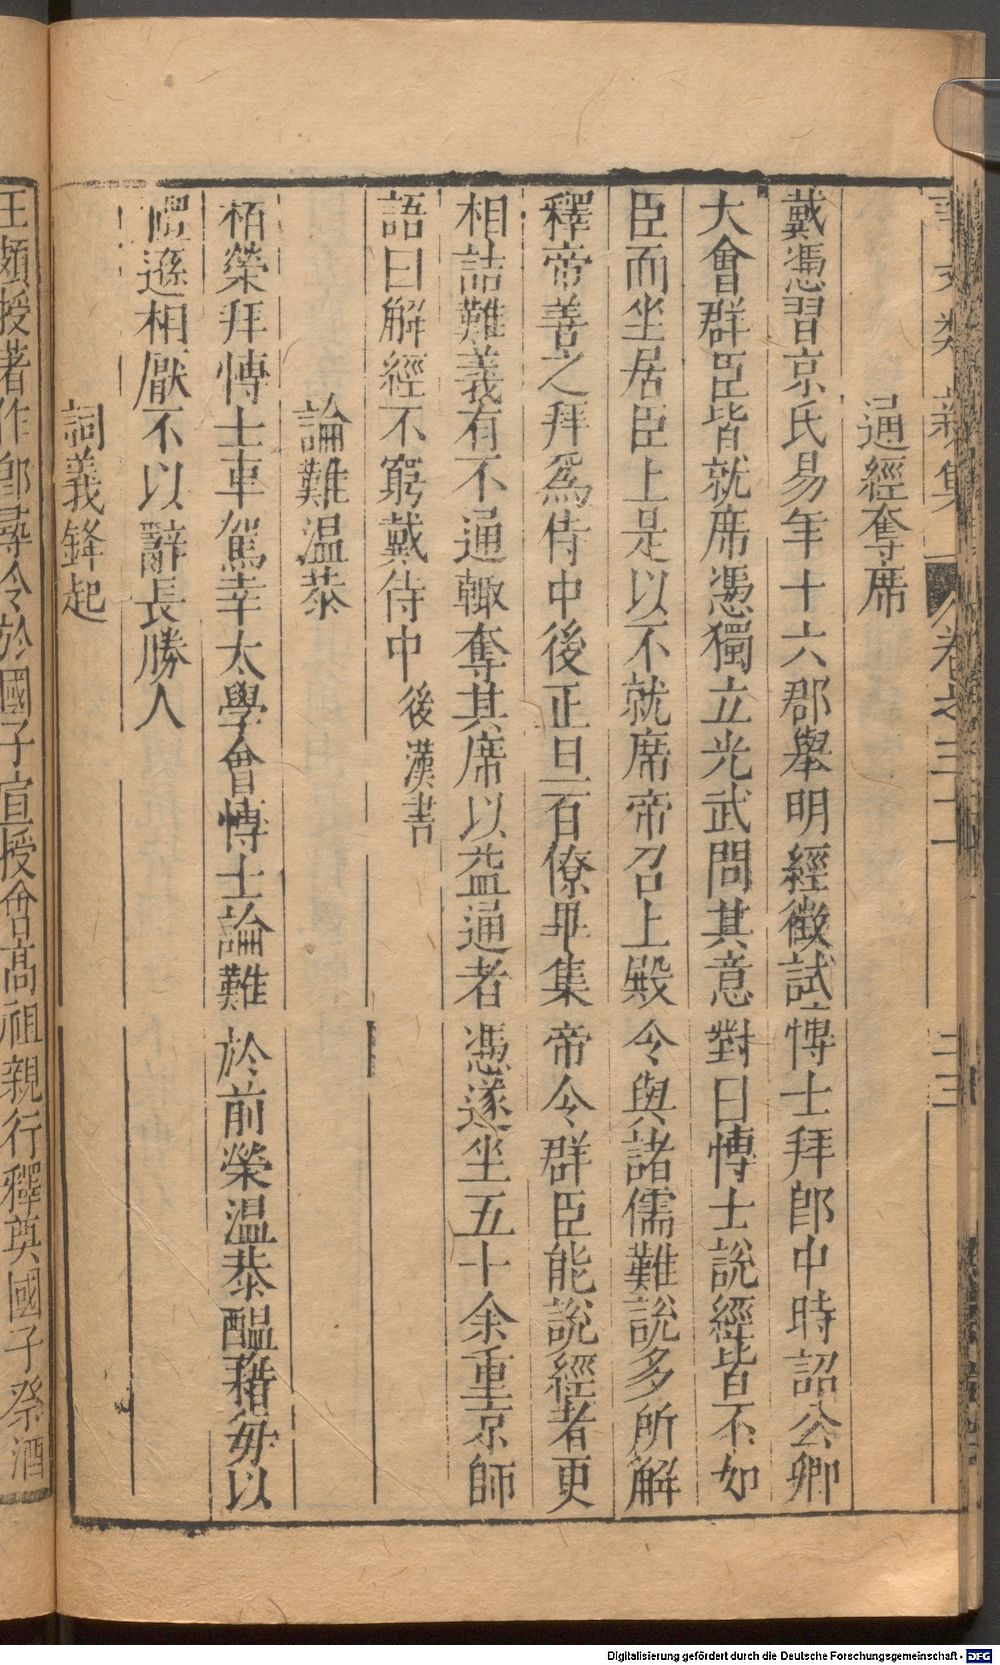 事文类新集 卷之三十一 二三
通經奪席
戴憑習京氏易年十六郡舉明經徵試博士拜郎中時詔公卿
大會群臣皆就席憑獨立光武問其意對曰博士說經皆不如
臣而坐居臣上是以不就席帝召上殿令與諸儒難說多所解
釋帝善之拜為侍中後正旦百僚畢集帝令群臣能說經者更
相詰難義有不通輙奪其席以益通者憑遂坐五十余重京師
語曰解經不窮戴侍中 後漢書
論難温恭
栢榮拜博士車駕幸太學會博士論難於前榮温恭醞藉毎以
禮遜相厭不以辭長勝人
詞義鋒起
王頍授著作郎尋令於國子宣授會高祖親行釋奠國子祭酒
Digitalisierung gefördert durch die Deutsche Forschungsgemeinschaft - DFG